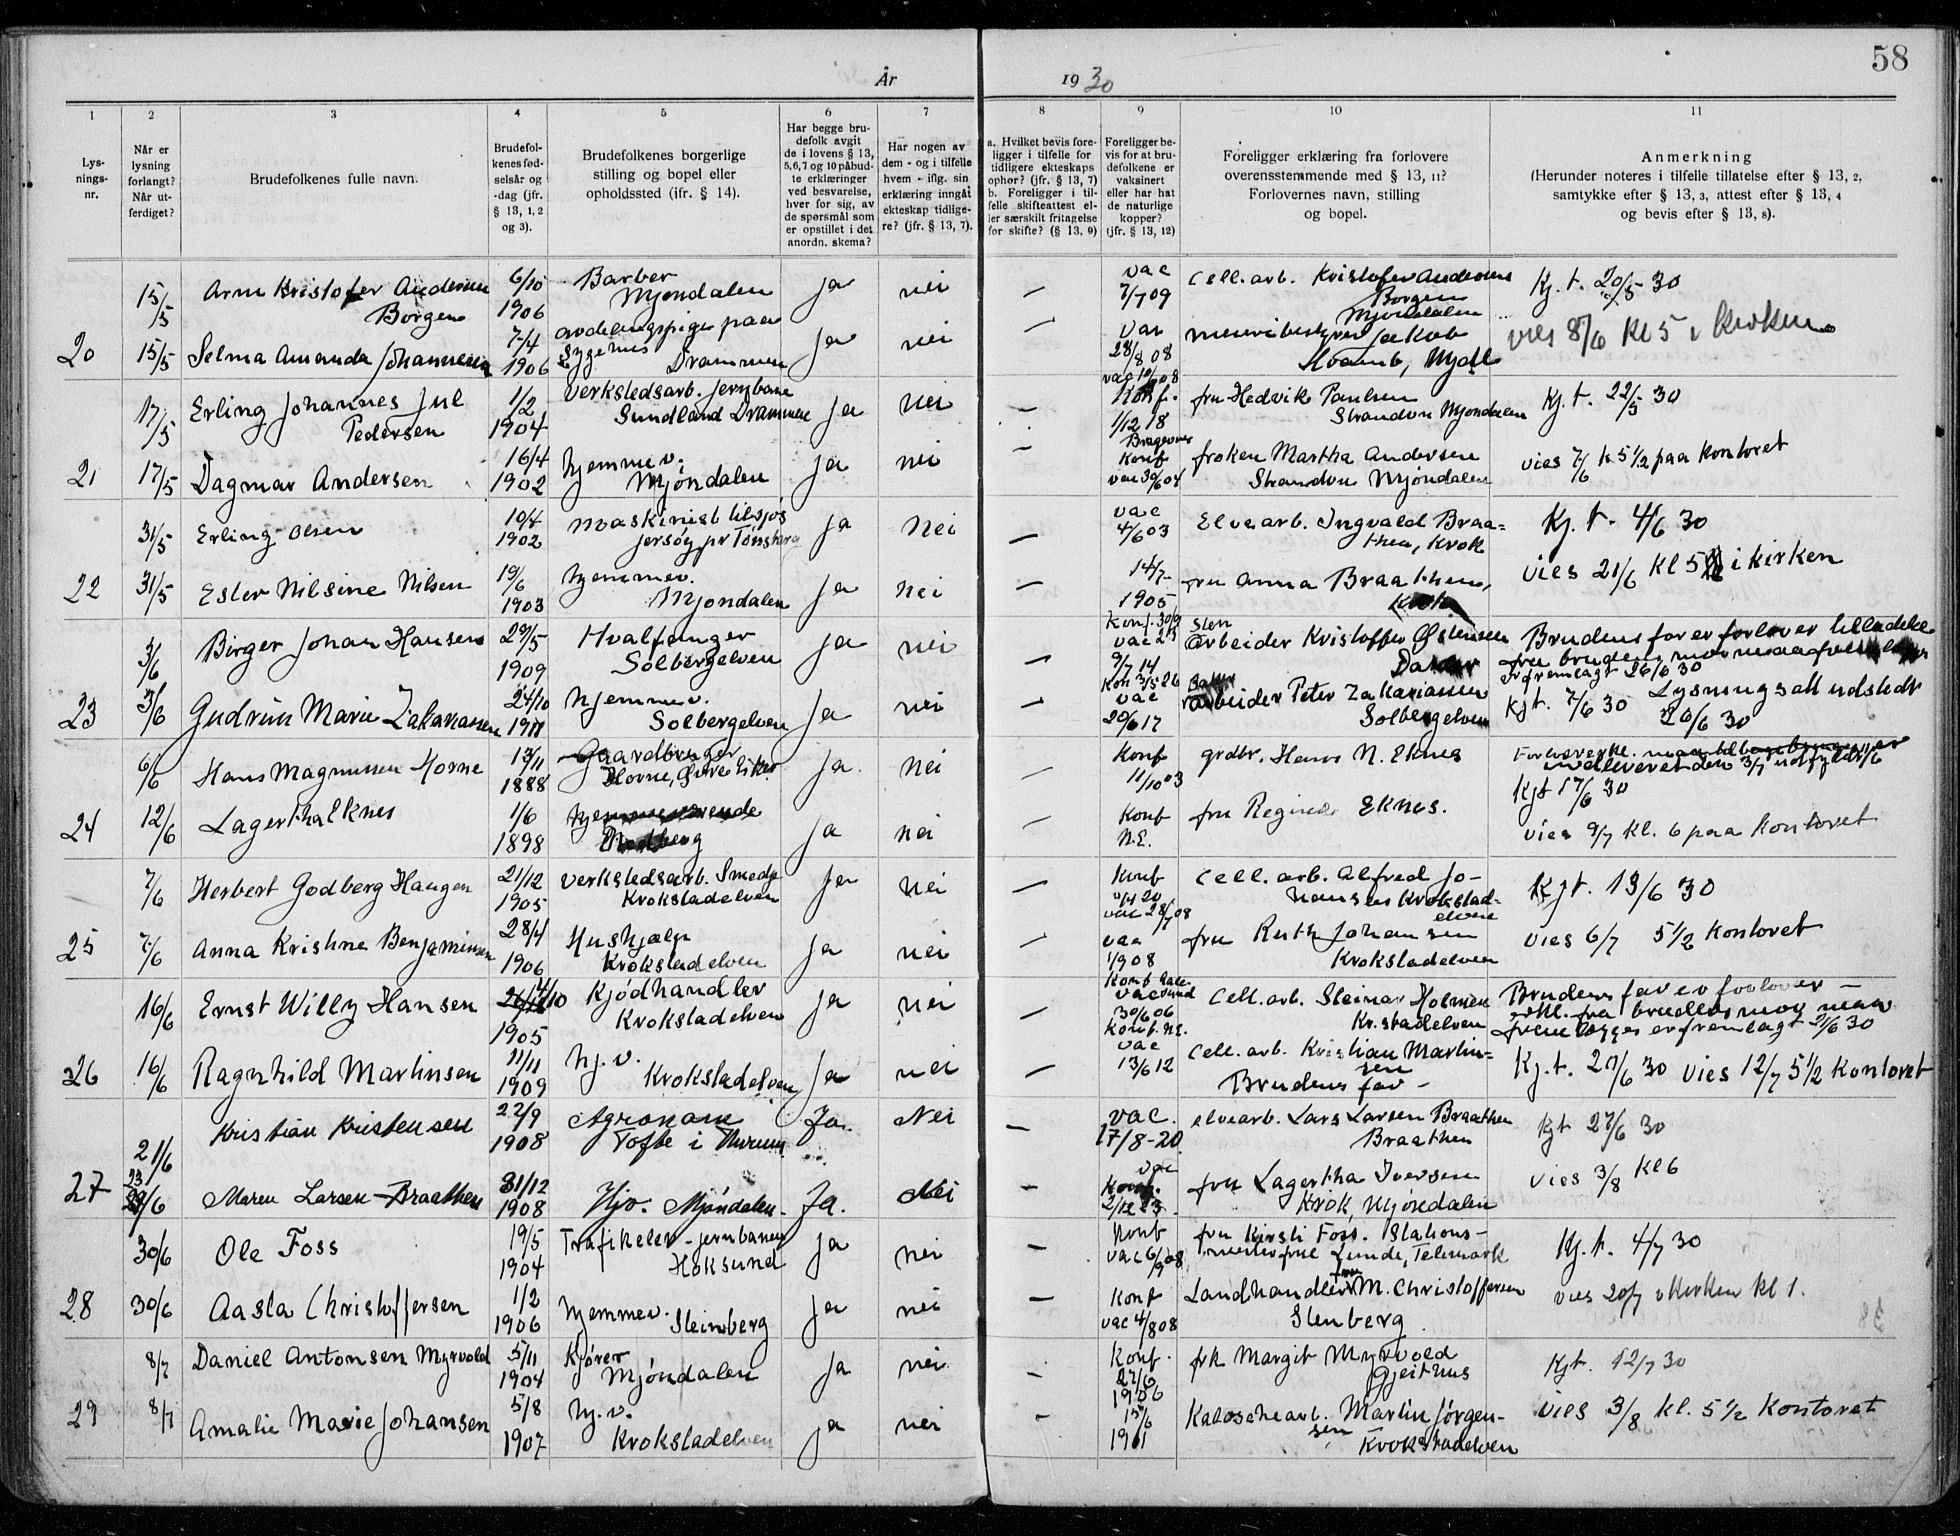 58
År 1930
1 2 3 4 5 6 7 8 9 10 11
Lys-
nings-
nr.
Når er
lysning
forlangt?
Når ut-
ferdiget?
Brudefolkenes fulle navn.
Brudefol-
kenes fød-
selsår og
-dag (jfr.
§ 13, 1, 2
og 3).
Brudefolkenes borgerlige
stilling og bopel eller
opholdssted (jfr. § 14).
Har begge bru-
defolk avgit
de i lovens § 13,
5,6,7 og 10 påbud-
te erklæringer
ved besvarelse,
hver for sig, av
de spørsmål som
er opstillet i det
anordn. skema?
Har nogen av
dem - og i tilfelle
hvem - iflg. sin
erklæring inngåt
ekteskap tidlige-
re? (jfr. § 13, 7).
a. Hvilket bevis fore-
ligger i tilfelle for
tidligere ekteskaps
ophør? (jfr. § 13, 7)
b. Foreligger i til-
felle skifteattest el-
ler særskilt fritagelse
for skifte? (§ 13, 9)
Foreligger be-
vis for at bru-
defolkene er
vaksinert
eller har hat
de naturlige
kopper?
(jfr. § 13, 12)
Foreligger erklæring fra forlovere
overensstemmende med § 13, 11?
Forlovernes navn, stilling
og bopel.
Anmerkning
(Herunder noteres i tilfelle tillatelse efter § 13, 2,
samtykke efter § 13, 3, attest efter § 13, 4
og bevis efter § 13, 8).
15/5 Arne Kristofer Andersen
Borgen
6/10
1906
Barber
Mjøndalen
ja nei — vac
7/7 09
Cell.arb. Kristofer Andersen
Borgen
Mjøndalen
Kj. t. 20/5 30
20 15/5 Selma Amanda Johannesen
7/4
1906
avdelingspige paa
Sygehus
Drammen
ja nei — vac
28/8 08
Jakob
Mjdl
vies 8/6 kl 5 i kirken
17/5 Erling Johannes Jul
Pedersen
1/2
1904
Verkstedsarb. jernbane
Sundland Drammen
ja nei — Konf.
1/12 18
fru Hedvik Paulsen
Strandvn Mjøndalen
Kj. t. 22/5 30
21 17/5 Dagmar Andersen
16/4
1902
hjemmev.
Mjøndalen
ja nei — Konf
vac 30/6 04
frøken Martha Andersen
Strandvn Mjøndalen
vies 7/6 k 5 1/2 paa kontoret
31/5 Erling Olsen
10/4
1902
maskinist tilsjøs
Jersøy pr Tønsberg
ja nei — vac
4/6 03
Elvearb. Ingvald Braa=
then, Krok
Kj. t. 4/6 30
22 31/5 Ester Nilsine Nilsen
19/6
1903
hjemmev.
Mjøndalen
ja nei — 14/7
1905
fru Anna Braathen,
Krok
vies 21/6 kl 5 i kirken
3/6 Birger Johan Hansen
29/5
1909
Hvalfanger
Solbergelven
ja nei —
9/7 14
arbeider Kristoffer Østensen
Brudens far er forlover
fremlagt 26/6 30
23 3/6 Gudrun Marie Zakariassen
24/10
1911
hjemmev.
Solbergelven
ja nei — vac
20/6 17
arbeider Peter Zakariassen
Solbergelven
Kjt. 7/6 30 Lysningsatt udstedt
26/6 30
6/6 Hans Magnussen Horne
13/11
1888
Gaardbruger
Horne, Øvre Eiker
ja nei — Konf
11/10 03
grdbr. Hans N. Eknes
Kjt 17/6 30
24 12/6 Lagertha Eknes
1/6
1898
hjemmeværende
ja nei Konf
N.E.
fru Regine Eknes.
vies 9/7 kl. 6 paa Kontoret
7/6 Herbert Godberg Haugen
21/12
1905
verkstedsarb. Smed
Krokstadelven
ja nei — Konf
vac 28/7 08
Cell. arb. Alfred Jo-
hansen Krokstad-
elven
Kjt. 13/6 30
25 7/6 Anna Kristine Benjaminsen
28/4
1906
Hushjælp
Krokstadelven
ja nei — vac
1/9 08
fru Ruth Johansen
Krokstadelven
vies 6/7 5 1/2 Kontoret
16/6 Ernst Willy Hansen
1905
Kjødhandler
Krokstadelven
ja nei —
30/6 06
Konf. N.E.
Cell. arb. Steinar Holmen
Kr.stadelven
Brudens far er forlover —
erkl. fra brudens mor maa
fremlægges er fremlagt 21/6 30
26 16/6 Ragnhild Martinsen
11/11
1909
hj.v.
Krokstadelven
ja nei — vac
13/6 12
Cell. arb. Kristian Martin=
sen
Brudens far —
Kj.t. 27/6 30 vies 12/7 5 1/2 Kontoret
21/6 Kristian Kristensen
22/9
1908
Agronom
Tofte i Hurum
Ja. Nei — vac.
17/8-20
elvearb. Lars Larsen Braathen
Braathen
Kjt 27/6 30
27 23/6 Maren Larsen Braathen
31/12
1908
Hjv. Mjøndalen.
Ja. Nei — vac
fru Lagertha Iversen
Krok, Mjøndalen
vies 3/8 kl 6
30/6 Ole Foss
19/5
1904
Trafikelev - jernbanen
Hoksund
ja nei — Konf
vac 6/9 08
fru Kirsti Foss. Stations-
mesterfrue Lunde, Telemark
Kj. t. 4/7 30
28 30/6 Aasta Christoffersen
1/2
1906
hjemmev.
Steinberg
ja nei — Konf
vac 4/8 08
Landhandler fru M. Christoffersen
Stenberg
vies 20/7 i Kirken kl 1.
8/7 Daniel Antonsen Myrvold
5/11
1904
Kjører
Mjøndalen
ja nei — Konf.
27/6
1906
frk Margit Myrvold
Gjeithus
Kjt. 12/7 30
29 8/7 Amalie Marie Johansen
5/8
1907
hj.v.
Krokstadelven
ja nei — 15/6
1911
Kaloschearb. Martin Jørgen-
sen
Krokstadelven
vies 3/8 kl. 5 1/2 Kontoret